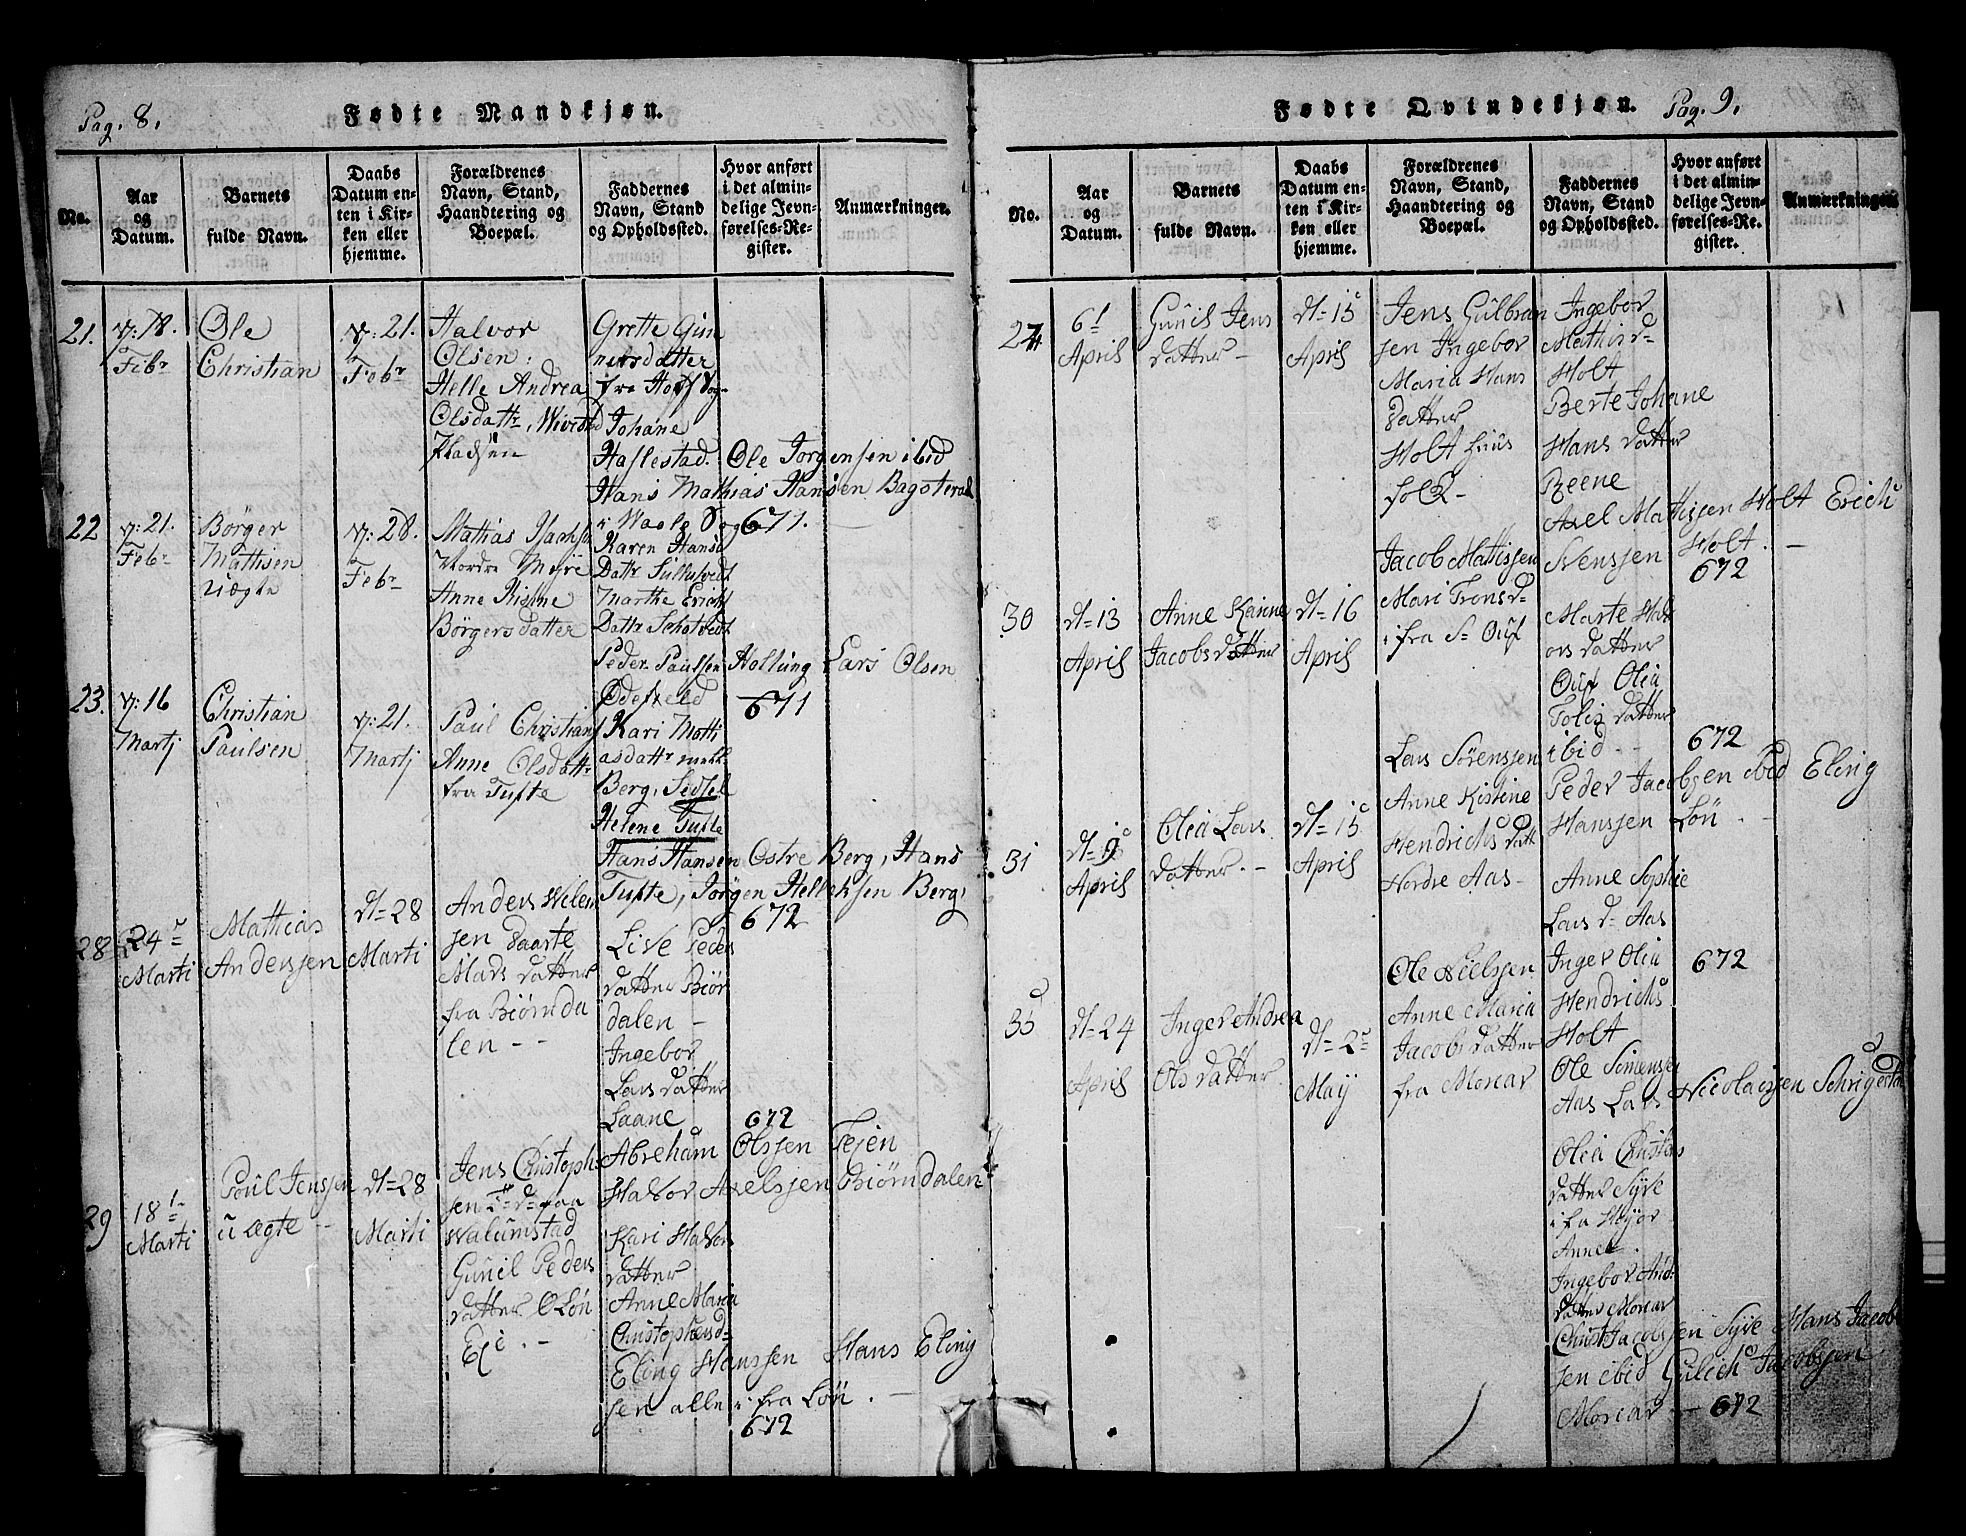 Pag. 8.
Fødte Mandkjøn.
No.
Aar
og
Datum.
Barnets
fulde Navn.
Daabs
Datum en-
ten i Kir-
ken eller
hjemme.
Forældrenes
Navn, Stand,
Haandtering og
Boepæl.
Faddernes
Navn, Stand
og Opholdssted.
Hvor anført
i det almin-
delige Jevn-
førelses-Re-
gister.
Anmærkninger.
21.
18.
Febr
Ole
Christian
21.
Febr
Halvor
Olsen:
Helle Andrea
Olsdattr,
Pladsen
Grette Gun
nersdatter
fra Hoff Sog-
Johane
Haslestad. Ole Jorgensen ibid
Hans Mathias Hansen
i Sog 671.
22
21.
Febr
Börger
Mathisen
uægte
28.
Febr
Mathias
Nordre
Anne
Börgersdatter
Karen Hans
Dattr
Marthe Erichs
Dattr
Peder Paulsen Lars Olsen
671
23.
16
Martj
Christian
Paulsen
21.
Martj
Paul Christians
Anne Olsdattr
fra Tufte
Kari Motti
asdattr
Berg, Sedsel
Helene Tufte
Hans Hansen Ostre Berg, Hans
Tufte, Jörgen Berg,
672
28
24
Marti
Mattias
Anderssen
dt=28
Marti
Anders
sen
Mads datter
fra Biörnda
len - -
Live Peders
datter Biör
dalen -
Ingebor
Lars datter
Laane 672
Abreham Olssen
Halvor Axelssen Biörndalen
29
18
Marti
Poul Jenssen
u ægte --
dt=28
Marti
Jens Christoph
sen
Walumstad
Gunil Peders
datter
Eje. -
Kari Halvors
datter
Anne Maria
Christophersd=
Eling Hanssen Hans Eling
sen alle i fra Lön. -
672
Fødte Qvindekjøn.
Pag. 9.
No.
Aar
og
Datum.
Barnets
fulde Navn.
Daabs
Datum en-
ten i Kir-
ken eller
hjemme.
Forældrenes
Navn, Stand,
Haandtering og
Boepæl.
Faddernes
Navn, Stand
og Opholdssted.
Hvor anført
i det almin-
delige Jevn-
førelses-Re-
gister.
Anmærkninger.
6
April
Gunil Jens
datter -
dt=15
April
Jens Gulbran
sen Ingebor
Maria Hans
datter
Holt Huus
folk -
Ingebor
Mathisd=
Holt
Berte Johane
Hans datter
Reene
Axel Mathissen Holt Erich
Svenssen Holt. -
672
30
dt=13
April
Anne
Jacobs datter
dt=16
April
Jacob Mathissen
Mari Tronsd=
i fra S=
Marte
ors datter
Olia
datter
ibid. - 672
Peder Jacobsen ibid Eling
Hanssen Lön. -
31
dt=9
April
Olia Lars
datter. -
dt=15
April
Lars Sörenssen
Anne Kistine
Hendrichs datt
Nordre Aas -
Anne Sophie
Lars d= Aas
Inger Olia 672
Hendrichs
Holt
Ole Simenssen
Aas Lars Nicolaissen
35
dt=24
April
Inger Andrea
Ols datter.
dt=2
Maij
Ole Nielssen
Anne Maria
Jacobs datter
fra Morcar
Olia Christens
datter Syre
i fra
Anne
Ingebor And:
datter Morcar
Christ Jacobssen Syre Hans Jacob
sen ibid Gulich Jacobssen
Morcar - 672